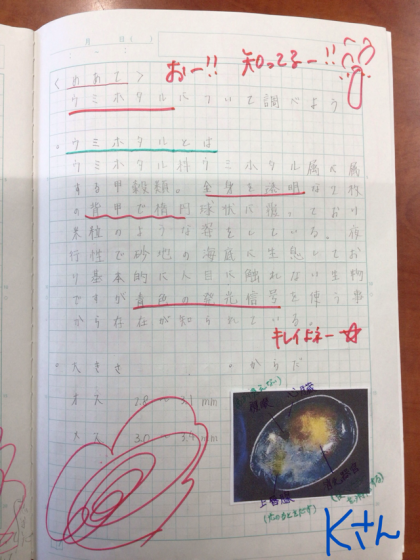 おー!! 知ってるー!!
<めあて>
ウミホタルについて調べよう
。ウミホタルとは
ウミホタル科ウミホタル属に属
する甲殻類。全身を透明な
の背甲で楕円球状に覆ており
米粒のような姿をしている。夜
行性で砂地の海底に生息してお
り基本的に人目に触れない生物
ですが青色の発光信号を使う事
から存在が知られている。
キレイよネー☆
。大きさ 。からだ
オス
メス 3.0
mm
mm
心臓
上唇腺
Kさん